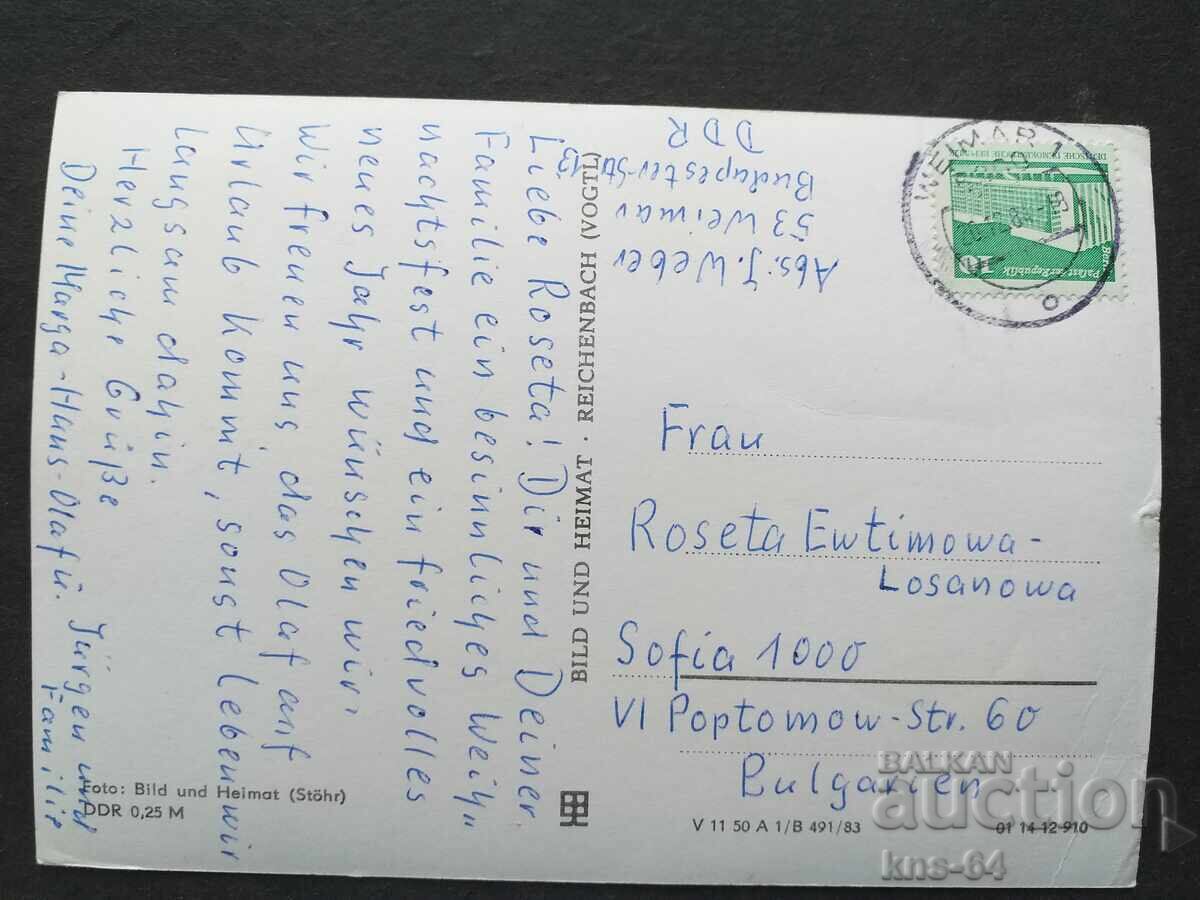 Liebe Roseta! Dir und Deiner
Familie ein besinnliches Weih„
nachtsfest und ein friedvolles
neues Jahr wünschen wir.
Wir freuen uns, das Olaf auf
Urlaub kommt, sonst leben wir
langsam dahin.
Herzliche Grüße
Deine Marga-Hans-Olaf u. Jürgen und
Familie
Abs: J. Weber
53 Weimar
Budapester-Str.
DDR
BILD UND HEIMAT · REICHENBACH (VOGTL)
WEIMAR 1
DEUTSCHE DEMOKRATISCHE REPUBLIK
Palast der Republik
10
Frau
Roseta Ewtimowa-
Losanowa
Sofia 1000
VI Poptomow-Str. 60
Bulgarien
Foto: Bild und Heimat (Stöhr)
DDR 0,25 M
V 11 50 A 1/B 491/83
01 14 12 910
BALKAN
auction
kns-64